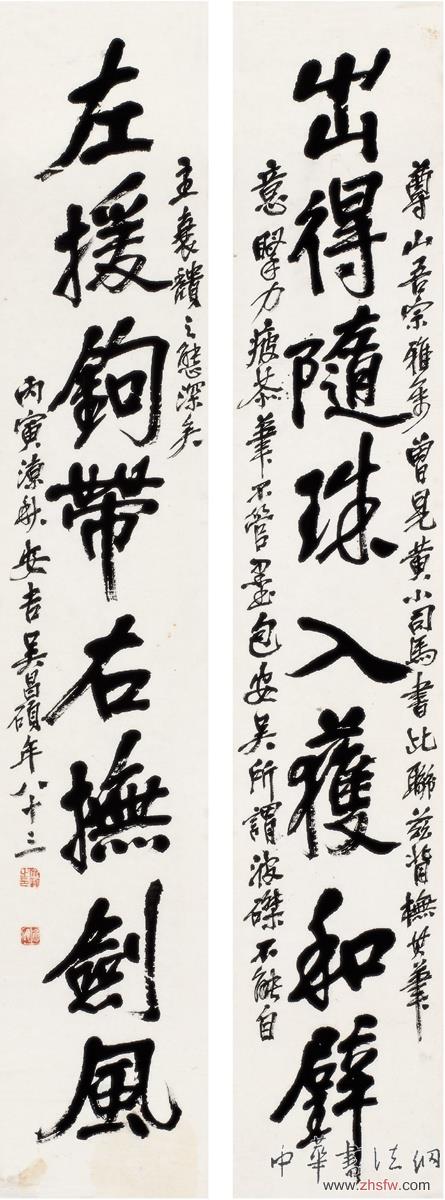 尊山吾宗雅属曾见黄小司马书此联兹背橅其笔
出得隨珠入獲和璧
意擥力疲茶筆不管墨包安吴所謂波磔不能自
主衰讀之態深矣
左援鉤帶右撫劍風
丙寅涼秋安吉吴昌碩年八十三
中華書法網
www.zhsfw.com